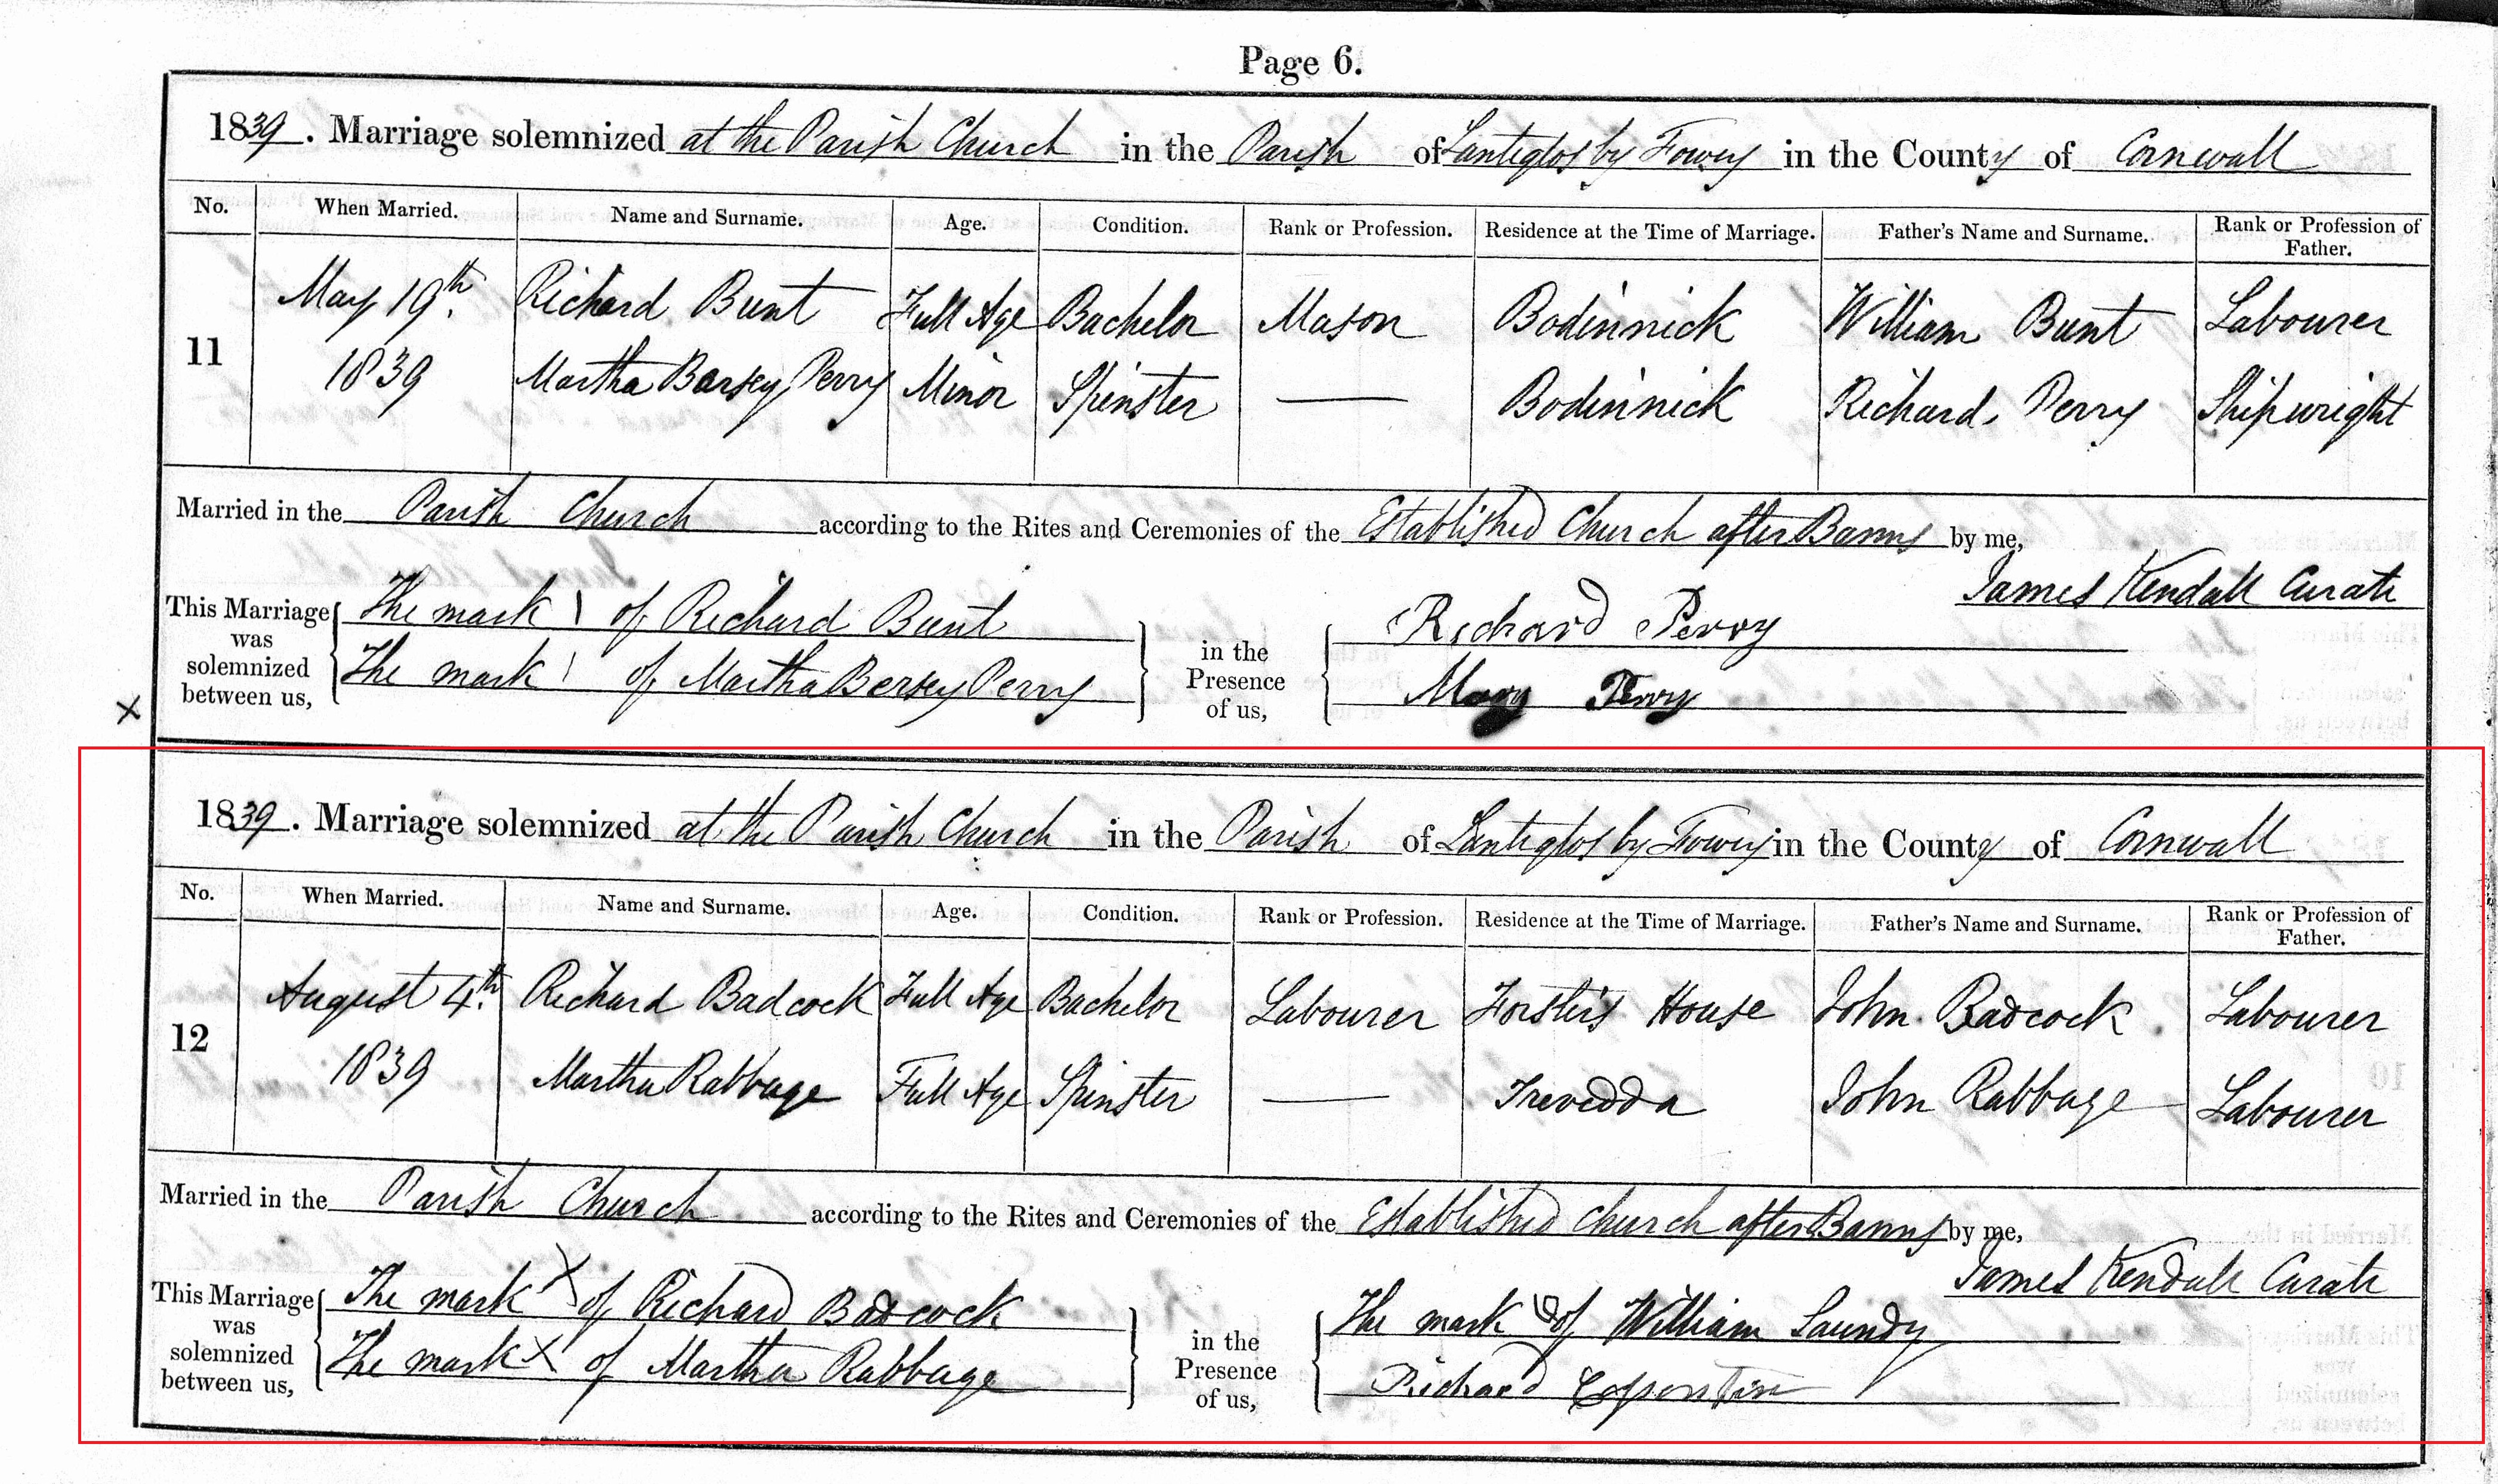 Page 6.
1839. Marriage solemnized at the Parish Church in the Parish of Lanteglos by Fowey in the County of Cornwall
No. When Married. Name and Surname. Age. Condition. Rank or Profession. Residence at the Time of Marriage. Father's Name and Surname. Rank or Profession of Father.
11 May 19th. Richard Bunt Full Age Bachelor Mason Bodinnick William Bunt Labourer
1839 Martha Bersey Perry Minor Spinster — Bodinnick Richard Perry Shipwright
Married in the Parish Church according to the Rites and Ceremonies of the Established Church after Banns by me,
James Kendall Curate
This Marriage was solemnized between us, The mark \ of Richard Bunt in the Presence of us, Richard Perry
The mark \ of Martha Bersey Perry Mary Perry
X
1839. Marriage solemnized at the Parish Church in the Parish of Lanteglos by Fowey in the County of Cornwall
No. When Married. Name and Surname. Age. Condition. Rank or Profession. Residence at the Time of Marriage. Father's Name and Surname. Rank or Profession of Father.
12 August 4th. Richard Badcock Full Age Bachelor Labourer House John Badcock Labourer
1839 Martha Rabbage Full Age Spinster — Trevedda John Rabbage Labourer
Married in the Parish Church according to the Rites and Ceremonies of the Established Church after Banns by me,
James Kendall Curate
This Marriage was solemnized between us, The mark X of Richard Badcock in the Presence of us, The mark of William Saundy
The mark X of Martha Rabbage Richard